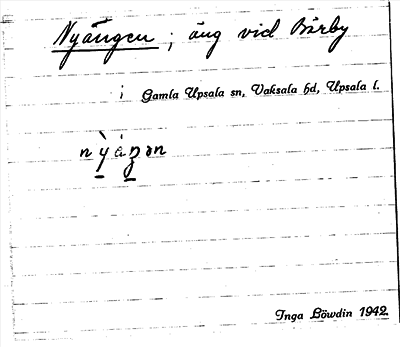 Nyängen; äng vid Bärby
i Gamla Upsala sn, Vaksala hd, Upsala l.
Inga Löwdin 1942.